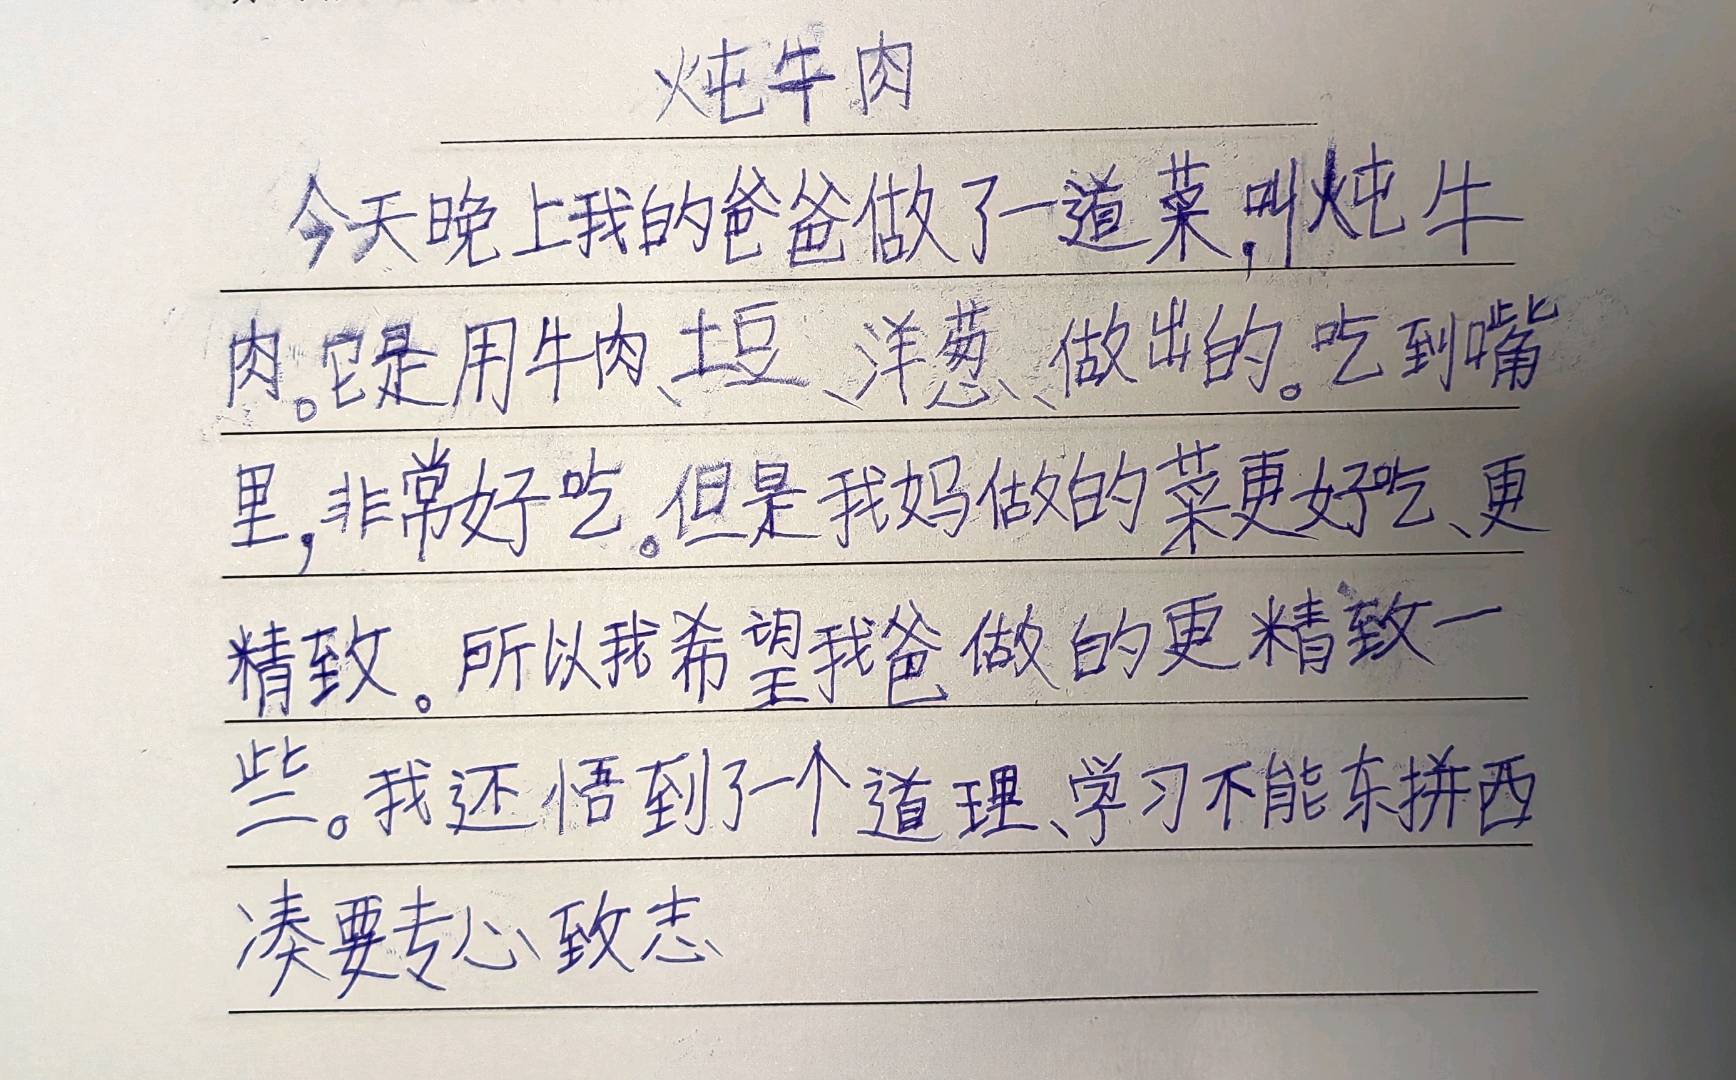 炖牛肉
今天晚上我的爸爸做了一道菜,叫炖牛
肉。它是用牛肉、土豆、洋葱、做出的。吃到嘴
里,非常好吃。但是我妈做的菜更好吃、更
精致。所以我希望我爸做的更精致一
些。我还悟到了一个道理、学习不能东拼西
凑要专心、致志